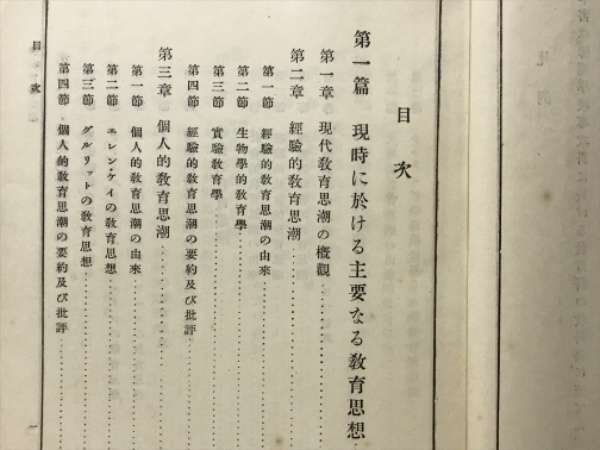 目次
第一篇 現時に於ける主要なる教育思想
第一章 現代教育思潮の槪觀
第二章 經驗的教育思潮
第一節 經驗的教育思潮の由來
第二節 生物學的教育學
第三節 實驗教育學
第四節 經驗的教育思潮の要約及び批評
第三章 個人的教育思潮
第一節 個人的教育思潮の由來
第二節 エレン・ケイの教育思想
第三節 グルリットの教育思想
第四節 個人的教育思潮の要約及び批評
目次
一